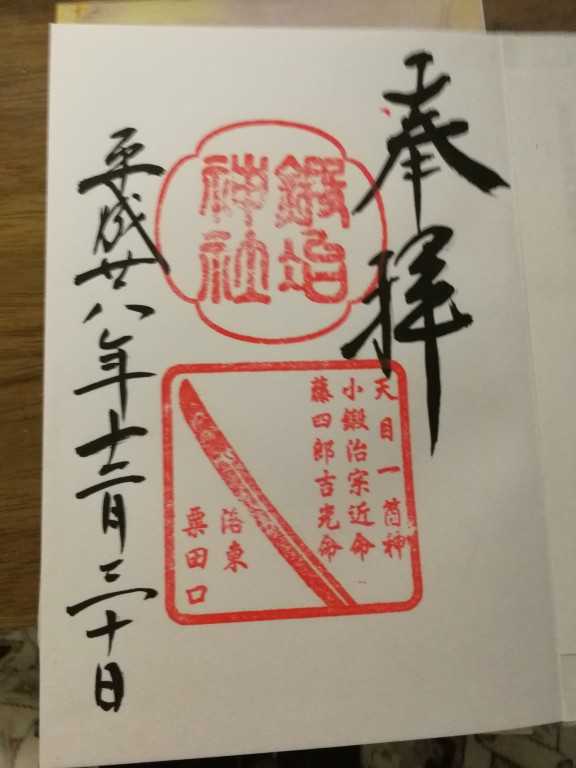 奉拝
鍛冶
神社
天目一筒神
小鍛治宗近命
藤四郎吉光命
洛東
粟田口
平成廿八年十二月三十日